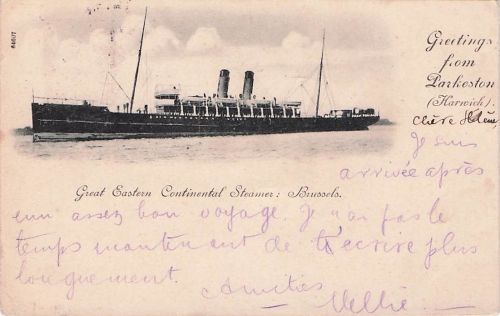 Greetings
from
Parkeston
(Harwich).
Chère Hélène
Je suis
arrivée après
Great Eastern Continental Steamer: Brussels.
un assez bon voyage. Je n'ai pas le
temps maintenant de t'ecrire plus
longuement. Amitiés
Nellie